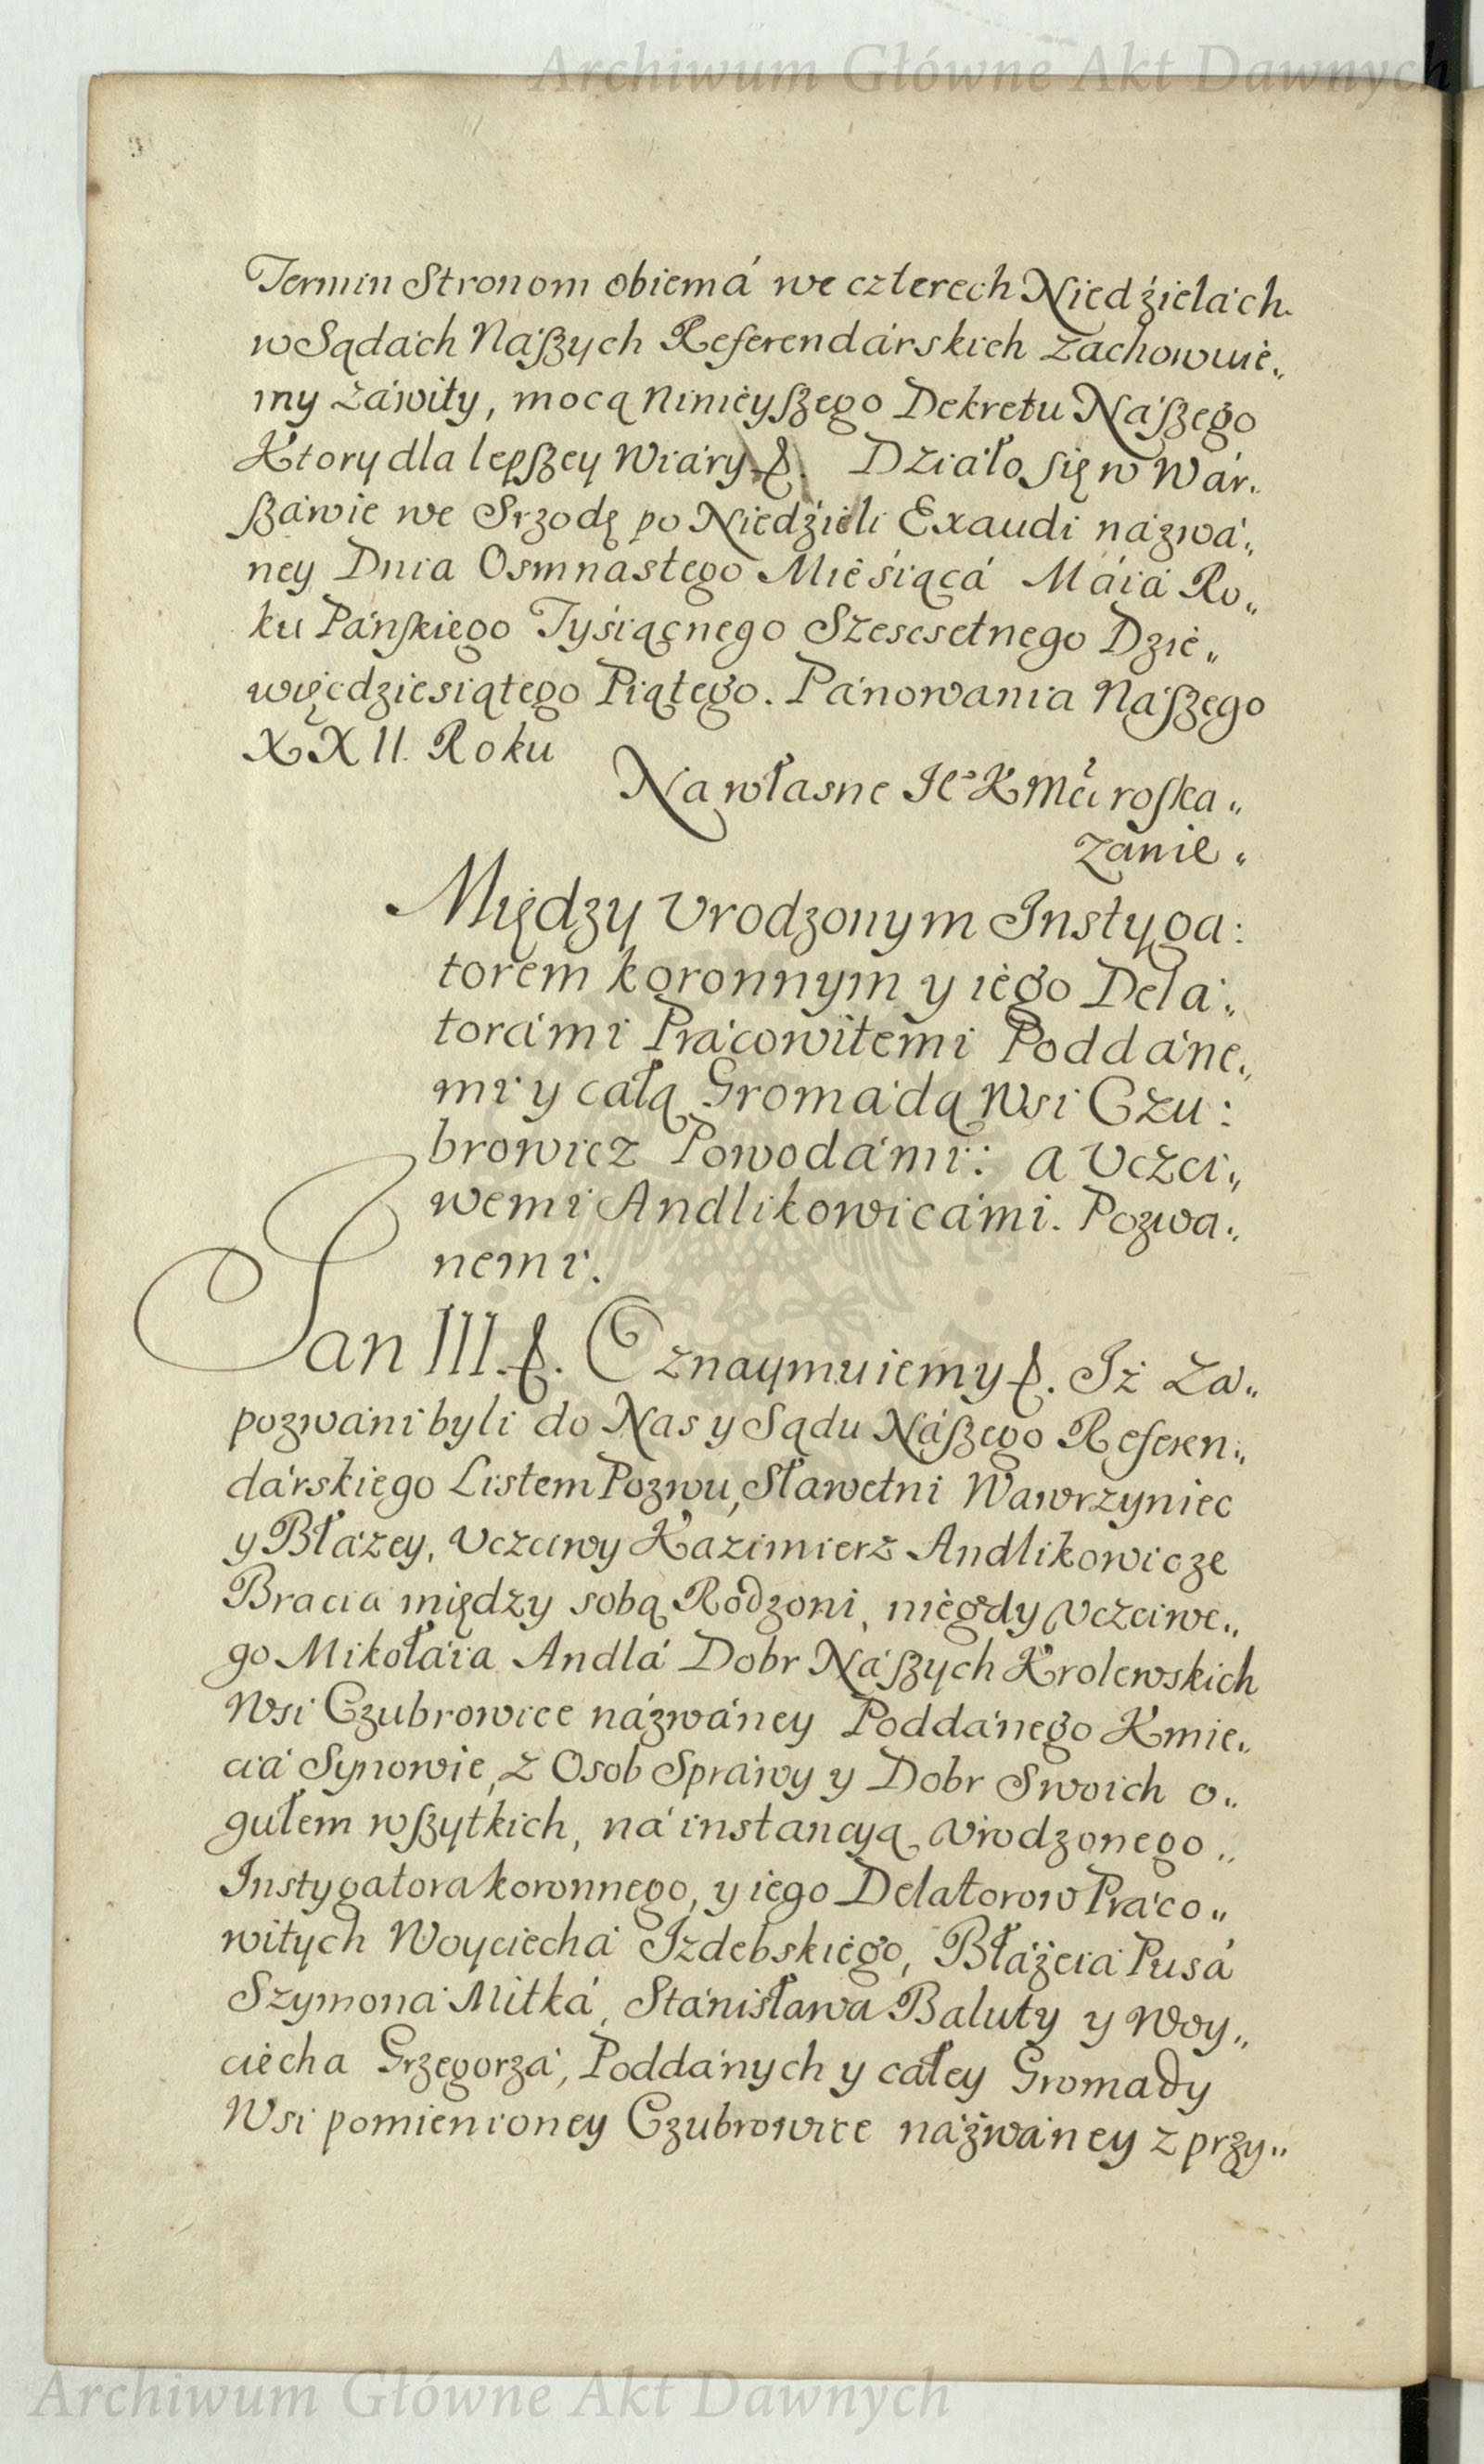 Archiwum Główne Akt Dawnych
Termin Stronom obiemá we czterech Niedźielách
w Sądách Nászych Referendárskich zachowuie„
my záwity, mocą ninieyszego Dekretu Nászego
Ktory dla lepszey wiáry &. Działo się w Wár„
száwie we Srzodę po Niedźieli Exaudi názwá„
ney Dnia Osmnastego Mieśiącá Máiá Ro„
ku Páńskiego Tyśiącnego Szescsetnego Dzie„
więcdziesiątego Piątego. Pánowania Nászego
XXII. Roku
Na własne Je° K Mci roska„
zanie„
Między Urodzonym Instyga:
torem koronnym y iego Delá„
torámi Prácowitemi Poddáne„
mi y całą Gromádą Wsi Czu:
browicz Powodámi: a Uczci„
wemi Andlikowicámi. Pozwa„
nemi.
Jan III. &. Oznaymuiemy &. Iż Za„
pozwáni byli do Nas y Sądu Nászego Referen„
dárskiego Listem Pozwu, Sławetni Wawrzyniec
y Błáżey, Uczciwy Kazimierz Andlikowicze
Bracia między sobą Rodzoni, niegdy Uczciwe„
go Mikołáia Andlá Dobr Nászych Krolewskich
Wsi Czubrowice názwáney Poddánego Kmie„
ciá Synowie, z Osob Spráwy y Dobr Swoich o„
gułem wszytkich, ná instancyą Urodzonego„
Instygatora koronnego, y iego Delatorow Práco„
witych Woyciechá Izdebskiego, Błáżeiá Pusá
Szymoná Mitká, Stánisława Baluty y Woy„
ciecha Grzegorzá, Poddánych y całey Gromady
Wsi pomienioney Czubrowice názwáney z przy„
Archiwum Główne Akt Dawnych